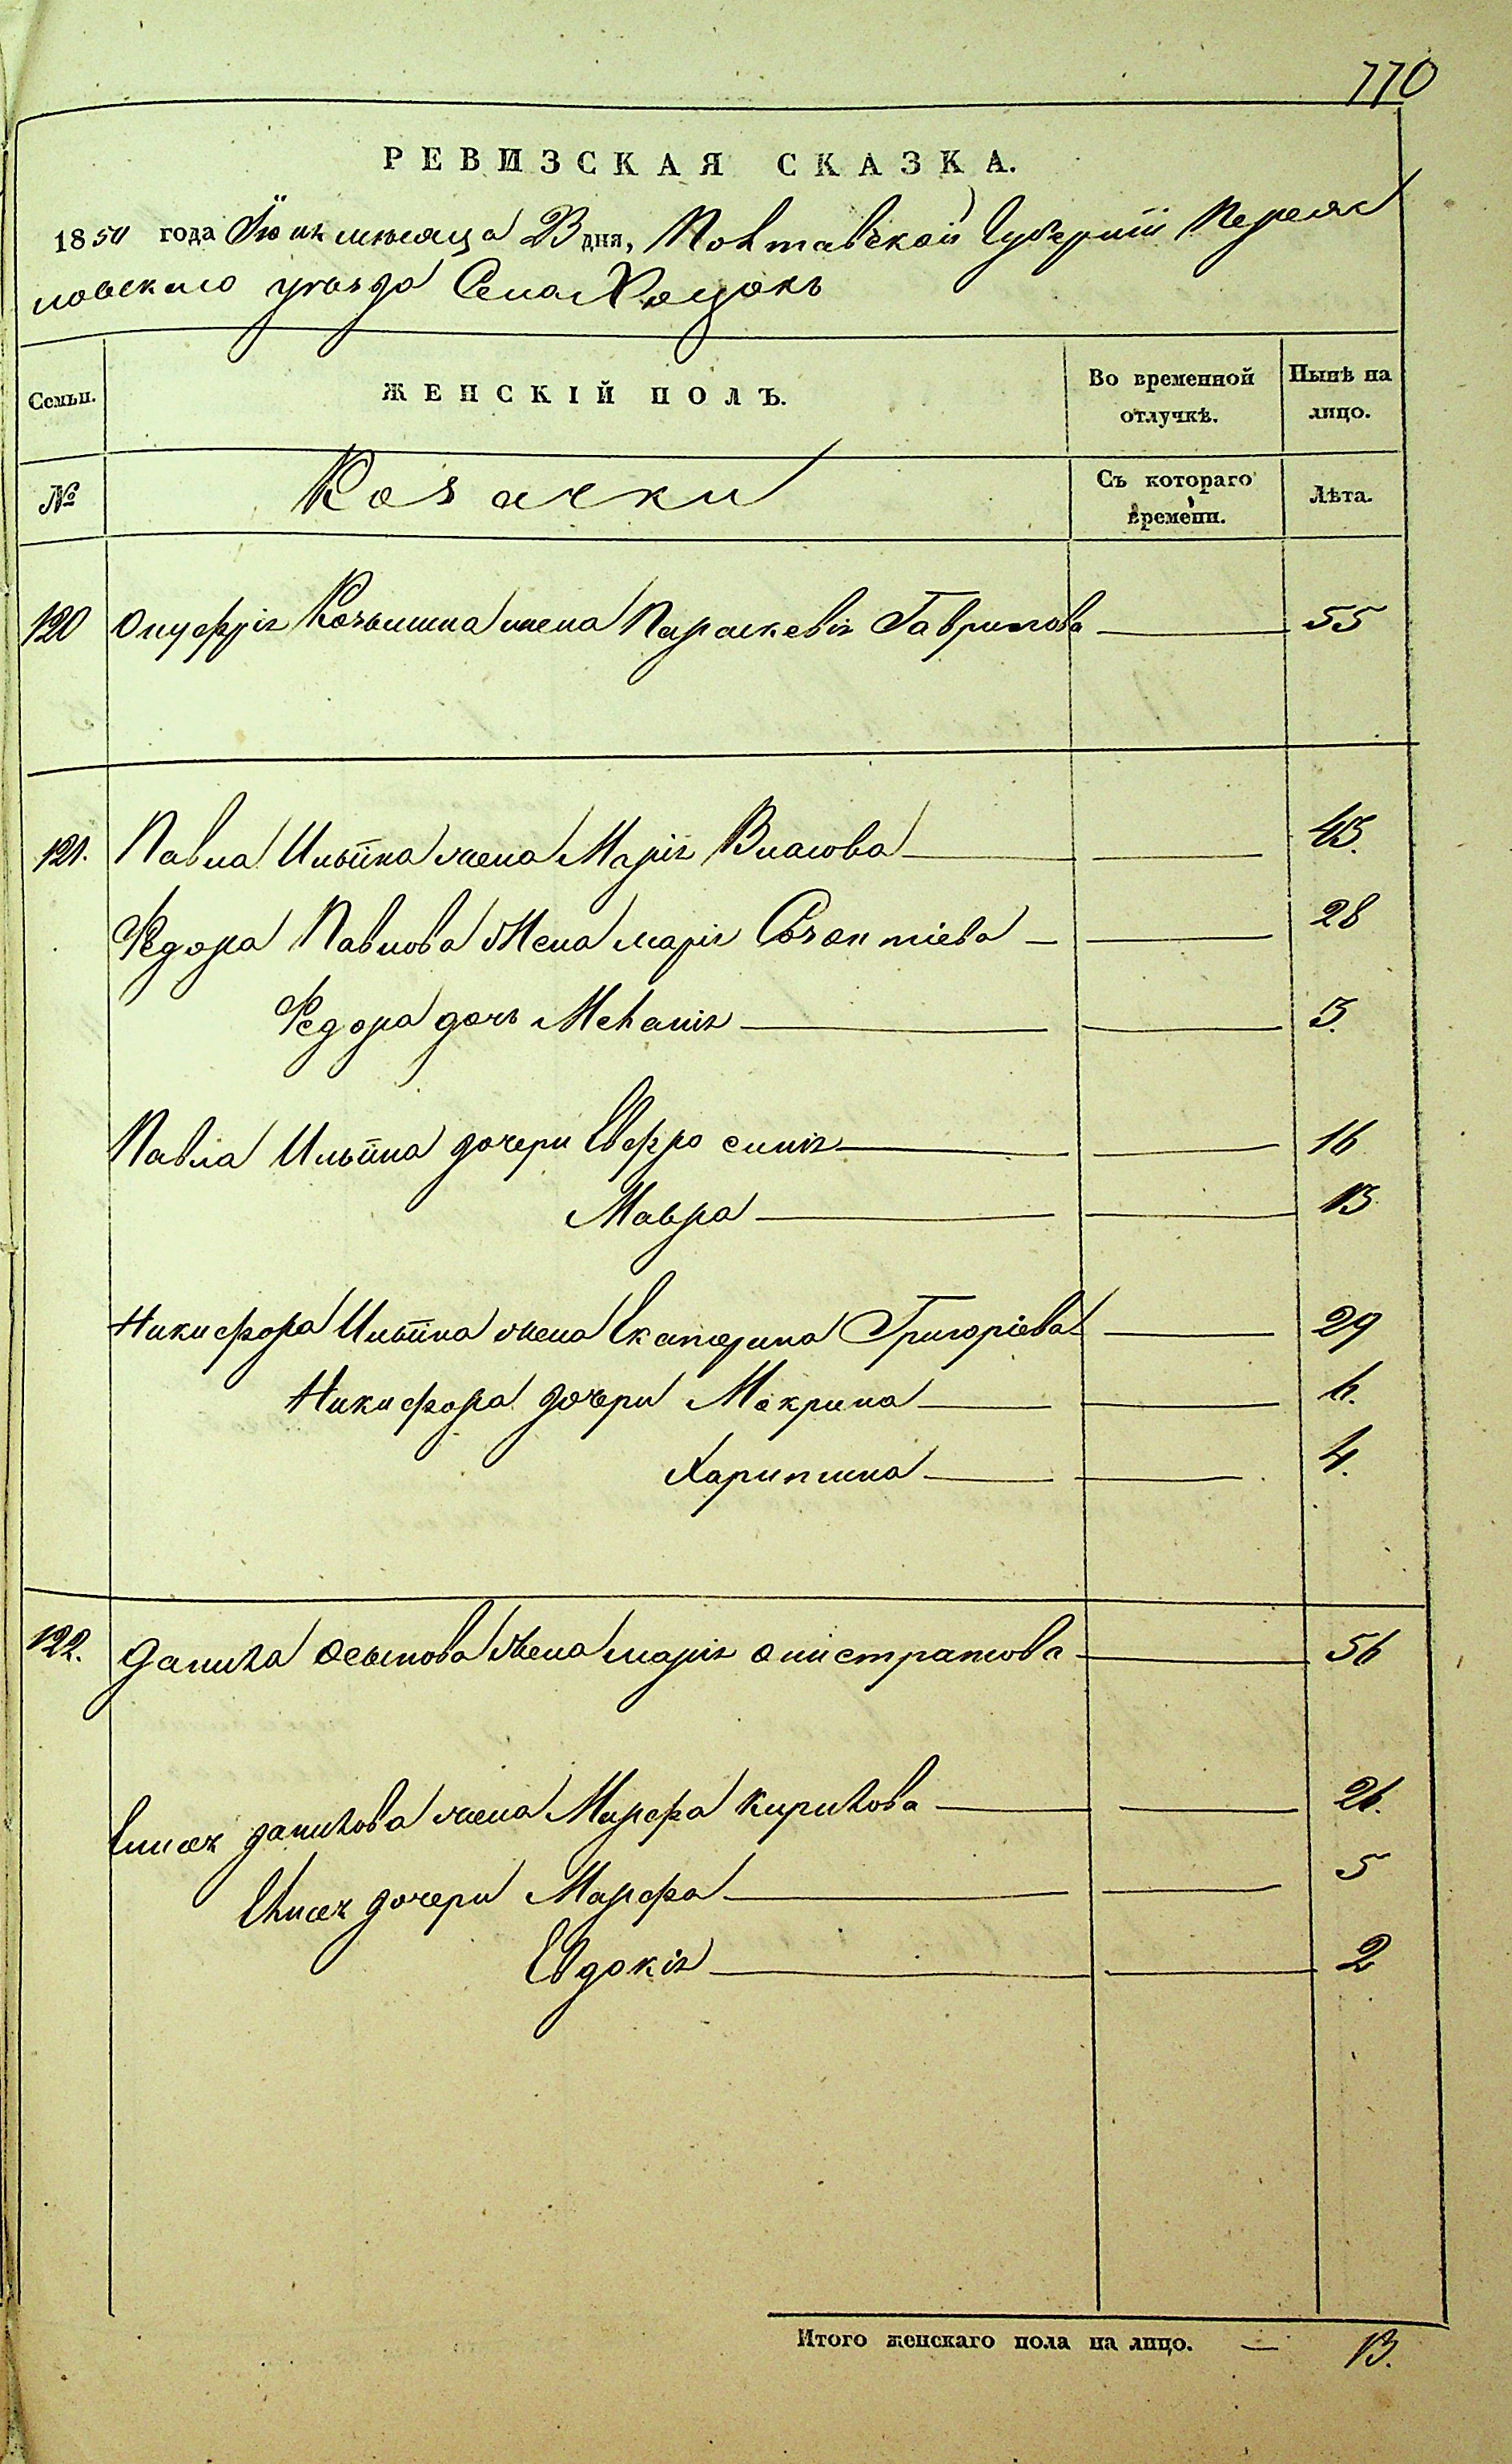 770
РЕВИЗСКАЯ СКАЗКА.
1850 года Іюня мѣсяца 23 дня, Полтавской Губерніи Переяс
ловского уѣзда Села Хоцокъ
Семьи. ЖЕНСКІЙ ПОЛЪ. Во временной отлучкѣ. Нынѣ на лицо.
№ Козачки Съ котораго времени. Лѣта.
120 Онуфрія Козьмина жена Параскевія Гаврилова 55
121. Павла Ильина жена Марія Власова 45.
Федора Павлова жена Марія 28
Федора дочь Меланія 5.
Павла Ильина дочери Евфросинія 16
Мавра 13
Никифора Ильина жена Екатерина Григоріева 29
Никифора дочери Макрина 6.
Харитина 4.
122. Данила Осипова жена Марія Онистратова 56
Елисея Данилова жена Марфа Кирилова 26.
Елисея дочери Марфа 5
Евдокія 2
Итого женскаго пола на лицо. — 13.